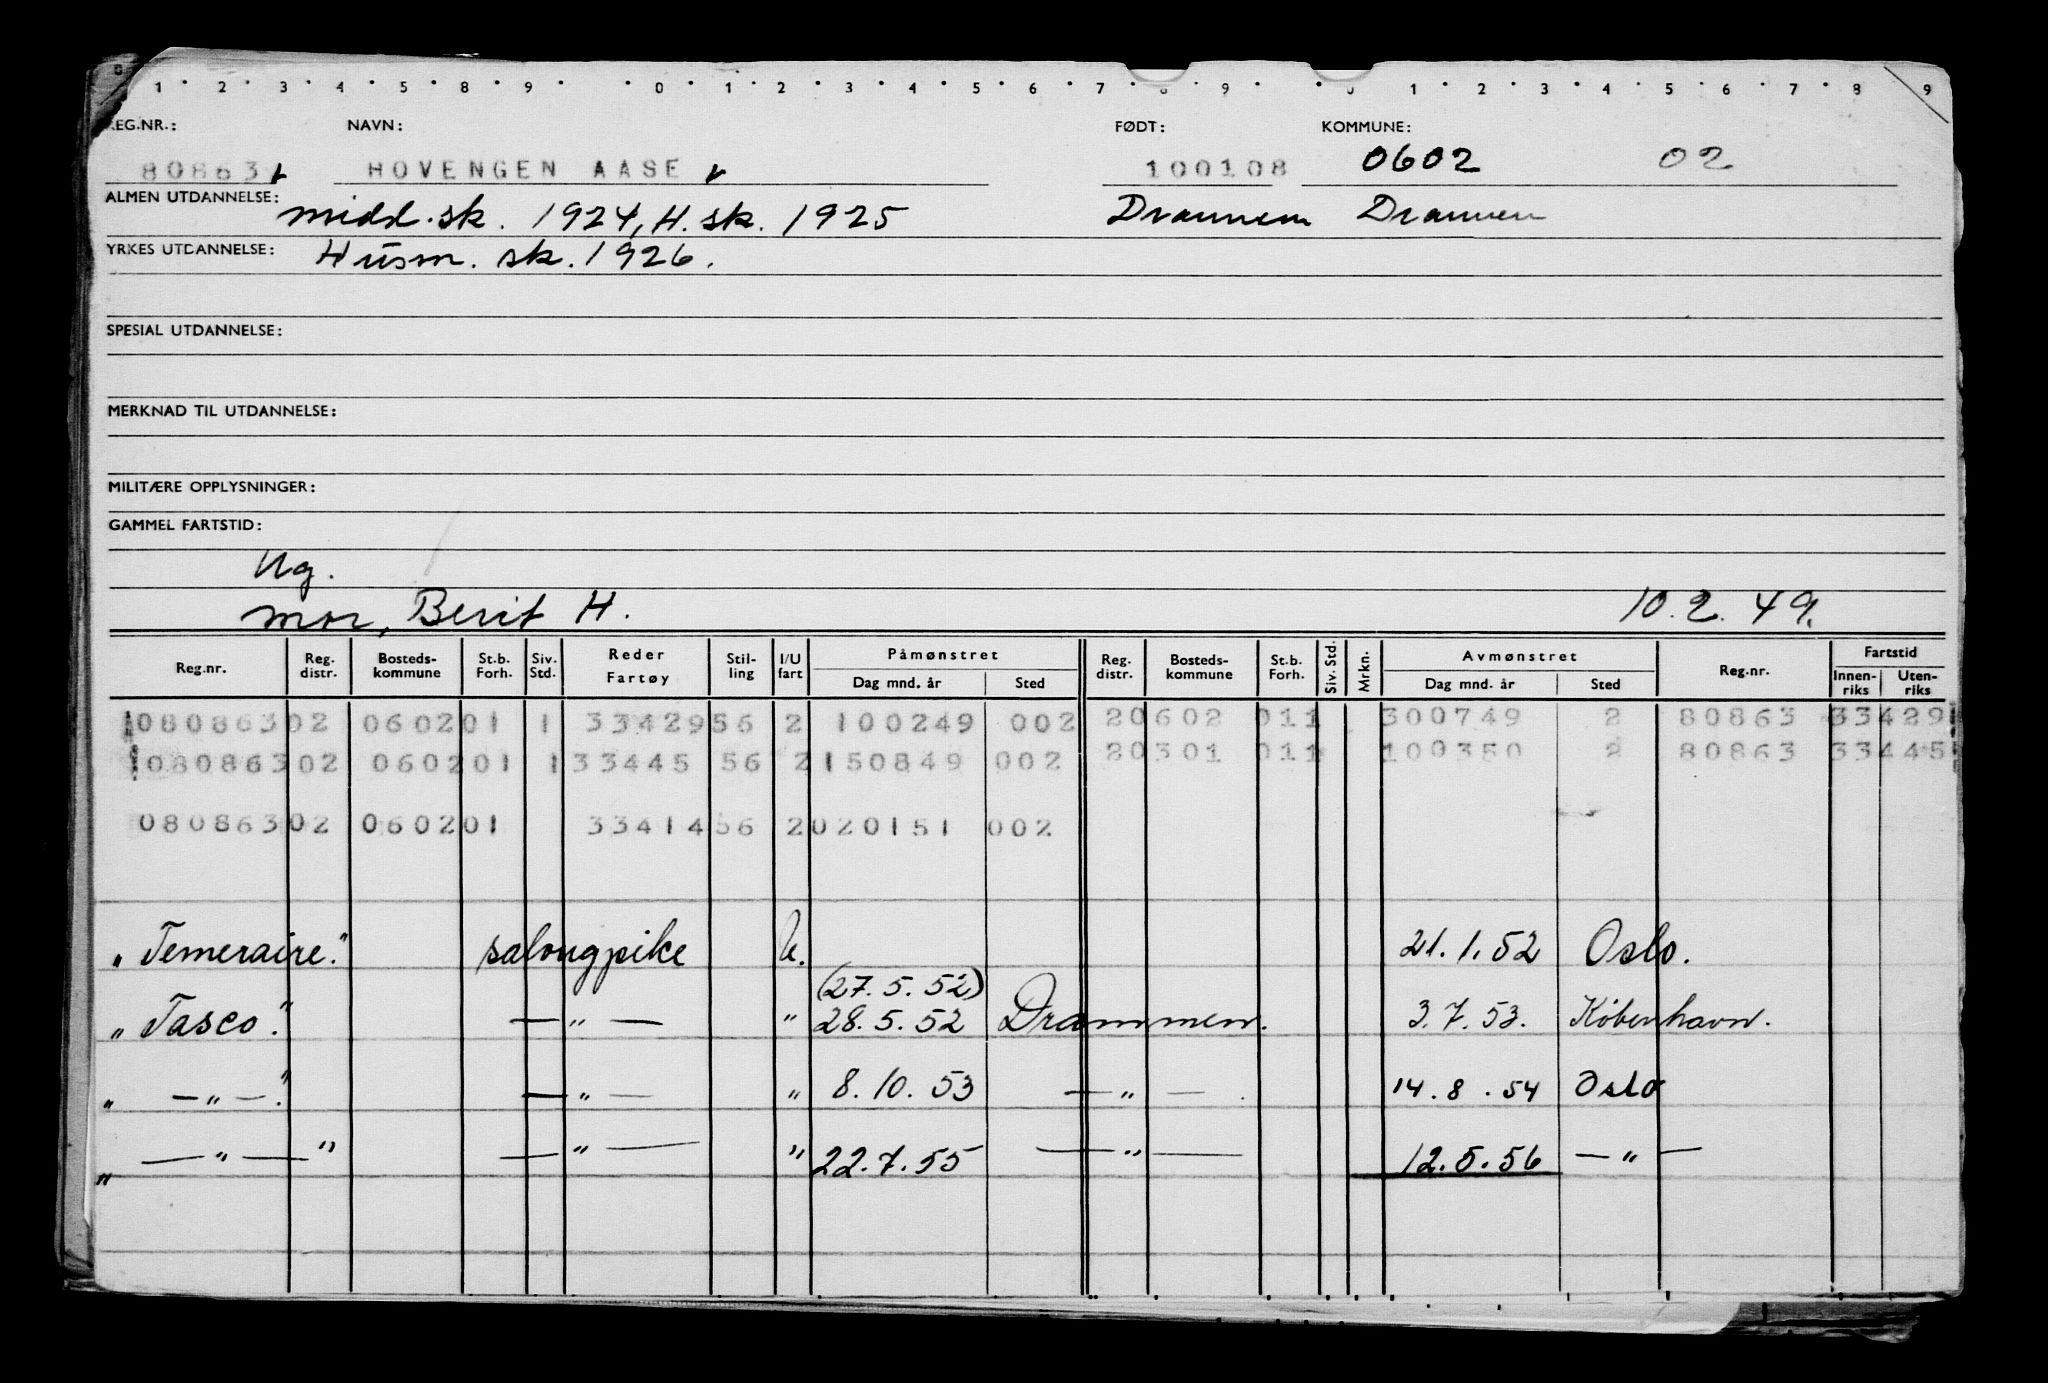 0 1 2 3 4 5 6 8 9 0 1 2 3 4 5 6 7 8 9 0 1 2 3 4 5 6 7 8 9
REG.NR.: NAVN: FØDT: KOMMUNE:
80863 HOVENGEN AASE 100108 0602 02
ALMEN UTDANNELSE: midd.sk. 1924, H.sk. 1925 Drammem Drammen
YRKES UTDANNELSE: Husm. sk. 1926.
SPESIAL UTDANNELSE:
MERKNAD TIL UTDANNELSE:
MILITÆRE OPPLYSNINGER:
GAMMEL FARTSTID:
Ug.
mor, Berit H. 10.2.49.
Reg.nr. Reg. distr. Bosteds-kommune St.b. Forh. Siv. Std. Reder Fartøy Stil-ling I/U fart Påmønstret Dag mnd. år Sted Reg. distr. Bosteds-kommune St.b. Forh. Siv. Std. Mrkn. Avmønstret Dag mnd. år Sted Reg.nr. Fartstid Innen-riks Uten-riks
08086302 060201 1 3342956 2 100249 002 20602 011 300749 2 80863 33429
08086302 060201 1 33445 56 2 150849 002 20301 011 100350 2 80863 33445
08086302 060201 3341456 2 020151 002
„Temeraire." salongpike U. 21.1.52 Oslo.
(27.5.52)
„Tasco." — " — " 28.5.52 Drammen. 3.7.53. København.
„ — " — ." — " — " 8.10.53 — " — . 14.8.54 Oslo
„ — " — " — " — " 22.7.55 — " — 12.5.56 — " —